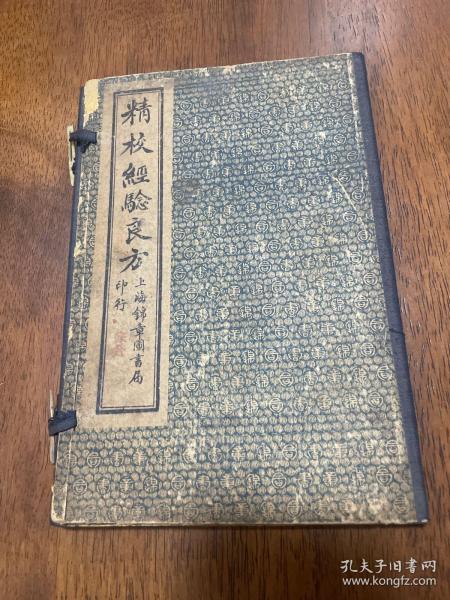 精校經驗良方
上海錦章圖書局
印行
孔夫子旧书网
www.kongfz.com